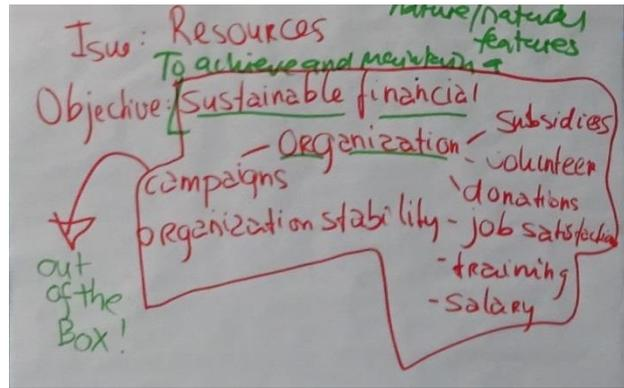 nature/natural
features
Isue: Resources
To achieve and maintain a
Objective: Sustainable financial
- Organization - Subsidies
- volunteer
- donations
campaigns
organization stability - job satisfaction
- training
- salary
out
of the
Box!